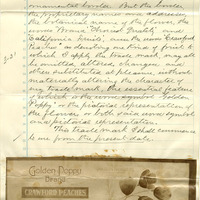 ornamental border. But the border
the proprietary names and addresses
the botanical name of the flower, the
words "Brand Choicest Fruits" and
"California fruits", and the word "Crawford
Peaches" as denoting one kind of fruit to
which I apply the trade mark, may all
be omitted, altered, changed and
others substituted at pleasure without
materially altering the character of
my trade mark, the essential feature
of which is the word symbol "Golden
Poppy" or the pictorial representation of
the flower or both said word symbol
and pictorial representation.
This Trade Mark I shall commence
to use from the present date.
Golden Poppy
Brand
CRAWFORD PEACHES